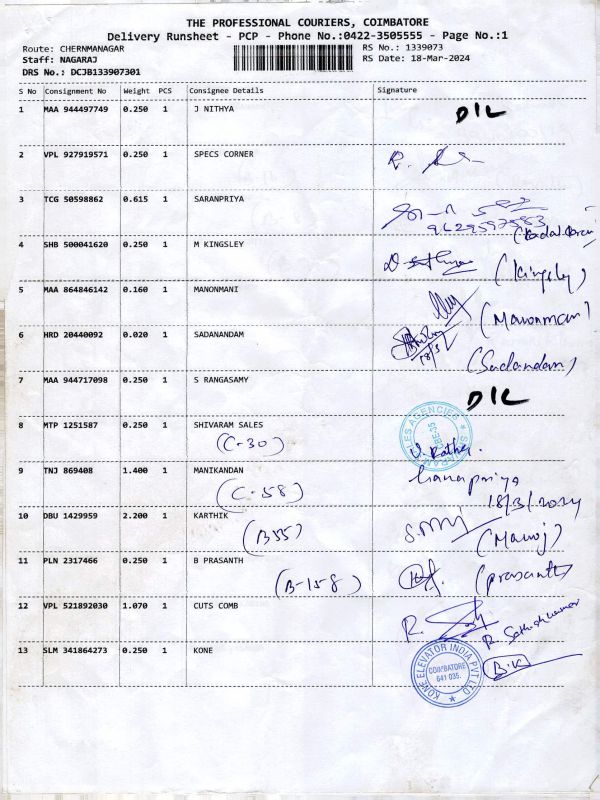 THE PROFESSIONAL COURIERS, COIMBATORE
Delivery Runsheet - PCP - Phone No.:0422-3505555 - Page No.:1
Route: CHERNMANAGAR
RS No.: 1339073
Staff: NAGARAJ
RS Date: 18-Mar-2024
DRS No.: DCJB133907301
S No Consignment No Weight PCS Consignee Details Signature
1 MAA 944497749 0.250 1 J NITHYA D/L
2 VPL 927919571 0.250 1 SPECS CORNER
3 TCG 50598862 0.615 1 SARANPRIYA
4 SHB 500041620 0.250 1 M KINGSLEY
(Kingsley)
5 MAA 864846142 0.160 1 MANONMANI
(Manonmani)
6 HRD 20440092 0.020 1 SADANANDAM
18/3/
(Sadandam)
7 MAA 944717098 0.250 1 S RANGASAMY D/L
8 MTP 1251587 0.250 1 SHIVARAM SALES
(C-30)
9 TNJ 869408 1.400 1 MANIKANDAN
(C-58)
18/3/2024
10 DBU 1429959 2.200 1 KARTHIK
(B55)
(Manoj)
11 PLN 2317466 0.250 1 B PRASANTH
(B-158)
(prasanth)
12 VPL 521892030 1.070 1 CUTS COMB
R. Sathishkumar
13 SLM 341864273 0.250 1 KONE
KONE ELEVATOR INDIA PVT LTD
COIMBATORE
641 035.
B.K